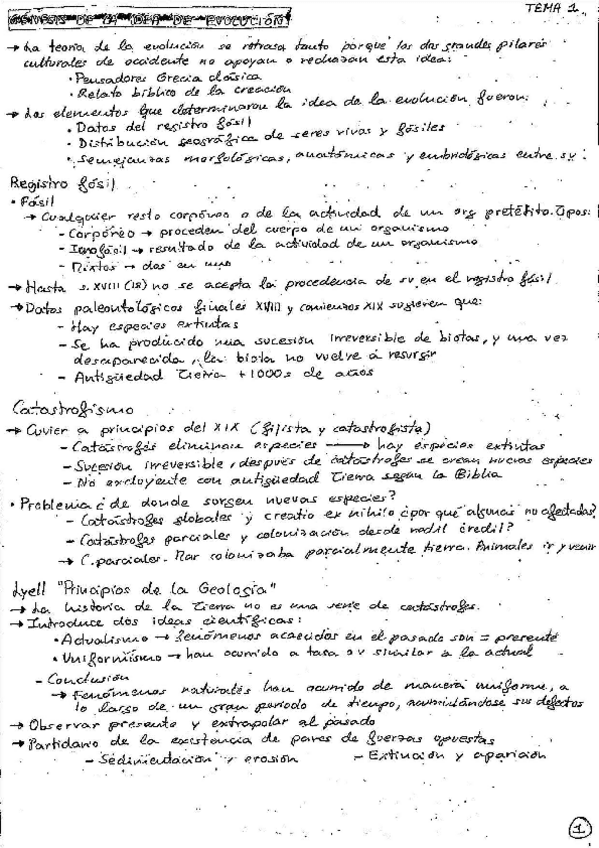 TEMA 1
GÉNESIS DE LA IDEA DE EVOLUCIÓN
→ La teoría de la evolución se retrasa tanto porque los dos grandes pilares
culturales de occidente no apoyan o rechazan esta idea:
· Pensadores Grecia clásica
· Relato bíblico de la creación
→ Los elementos que determinaron la idea de la evolución fueron:
· Datos del registro fósil
· Distribución geográfica de seres vivos y fósiles
· Semejanzas morfológicas, anatómicas y embriológicas entre sv.
Registro fósil
· Fósil
→ Cualquier resto corpóreo o de la actividad de un org pretérito. Tipos:
- Corpóreo → proceden del cuerpo de un organismo
- Icnofósil → resultado de la actividad de un organismo
- Mixtos → dos en uno
→ Hasta s. XVIII (18) no se acepta la procedencia de sv en el registro fósil
→ Datos paleontológicos finales XVIII y comienzos XIX sugieren que:
- Hay especies extintas
- Se ha producido una sucesión irreversible de biotas, y una vez
desaparecida, la biota no vuelve a resurgir
- Antigüedad Tierra +1000s de años
Catastrofismo
→ Cuvier a principios del XIX (fijista y catastrofista)
- Catástrofes eliminan especies → hay especies extintas
- Sucesión irreversible, después de catástrofes se crean nuevas especies
- No excluyente con antigüedad Tierra según la Biblia
· Problema ¿de donde surgen nuevas especies?
- Catástrofes globales y creatio ex nihilo ¿por qué algunas no afectadas?
- Catástrofes parciales y colonización desde
→ C. parciales. Mar colonizaba parcialmente tierra. Animales ir y venir
Lyell "Principios de la Geología"
→ La historia de la Tierra no es una serie de catástrofes.
→ Introduce dos ideas científicas:
· Actualismo → fenómenos acaecidos en el pasado son = presente
· Uniformismo → han ocurrido a tasa o v similar a la actual
- Conclusión
→ Fenómenos naturales han ocurrido de manera uniforme, a
lo largo de un gran periodo de tiempo, acumulándose sus efectos
→ Observar presente y extrapolar al pasado
→ Partidario de la existencia de pares de fuerzas opuestas
- Sedimentación y erosión - Extinción y aparición
1